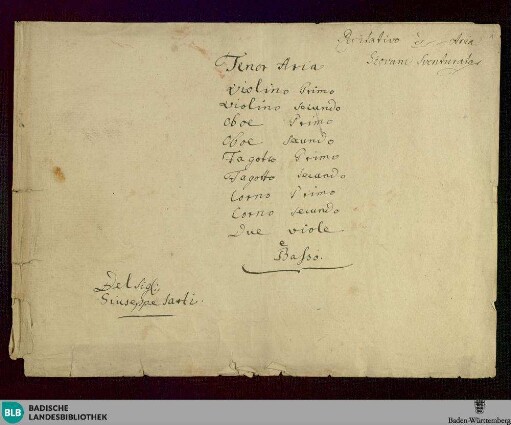 Recitativo è Aria
Giovani Sventurata
Tenor Aria
Violino Primo
Violino Secundo
Oboe Primo
Oboe Secundo
Fagotto Primo
Fagotto Secundo
Corno Primo
Corno Secundo
Due Viole
e
Basso.
Del Sigl:
Giuseppe Sarti.
BLB BADISCHE
LANDESBIBLIOTHEK
Baden-Württemberg